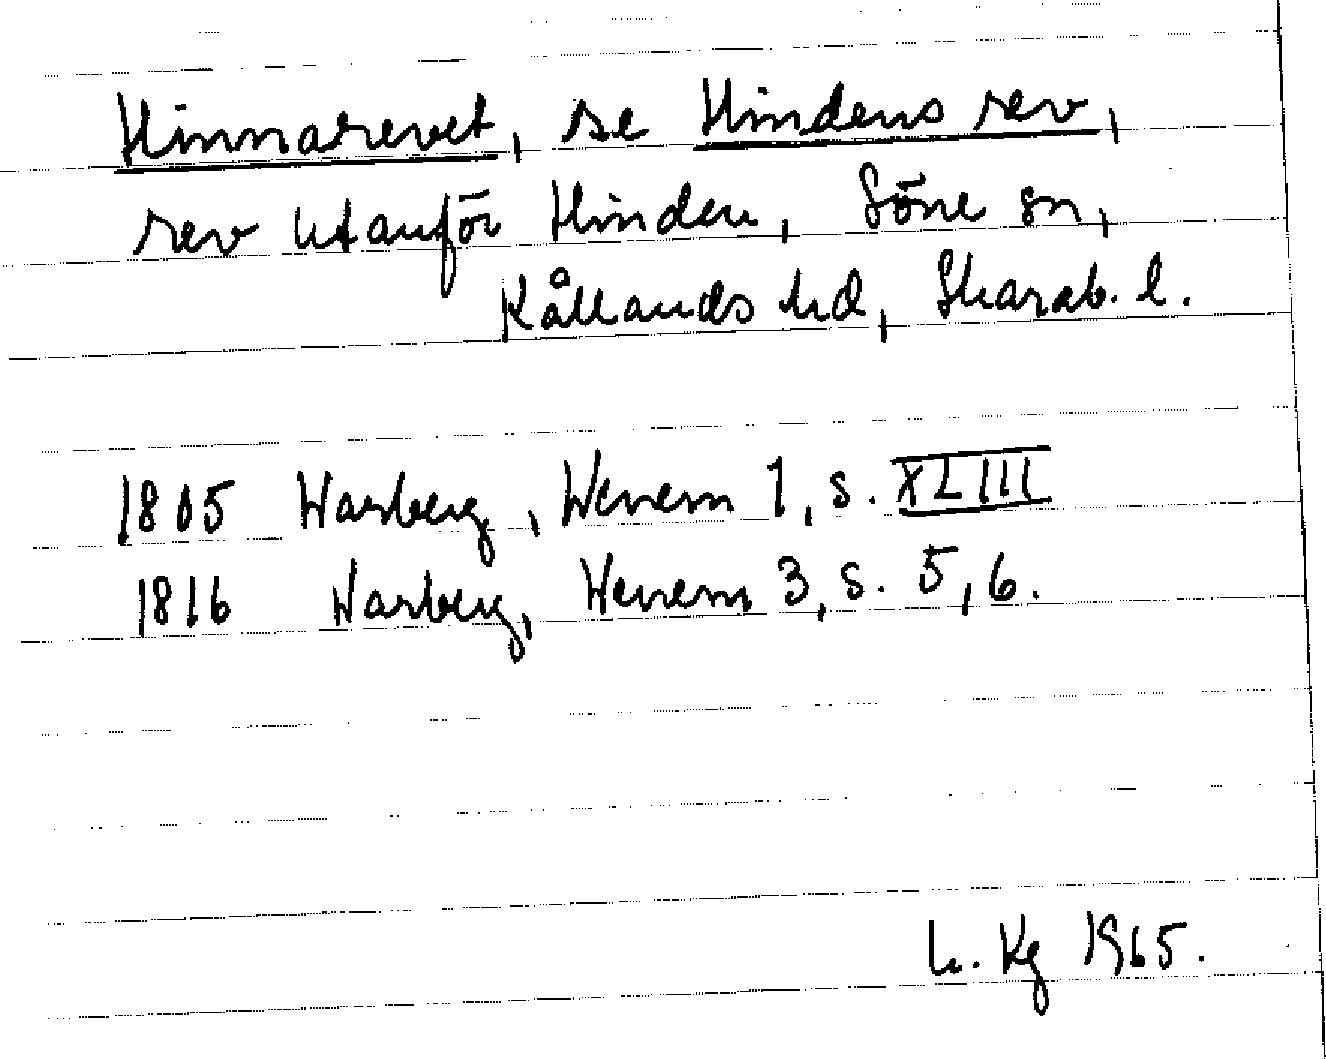 Hinnarevet, se Hindens rev,
rev utanför Hinden, Söne sn,
Kållands hd, Skarab. l.
1805 Warberg, Wenern 1, s. XLIII
1816 Warberg, Wenern 3, s. 5, 6.
h. Kg 1965.